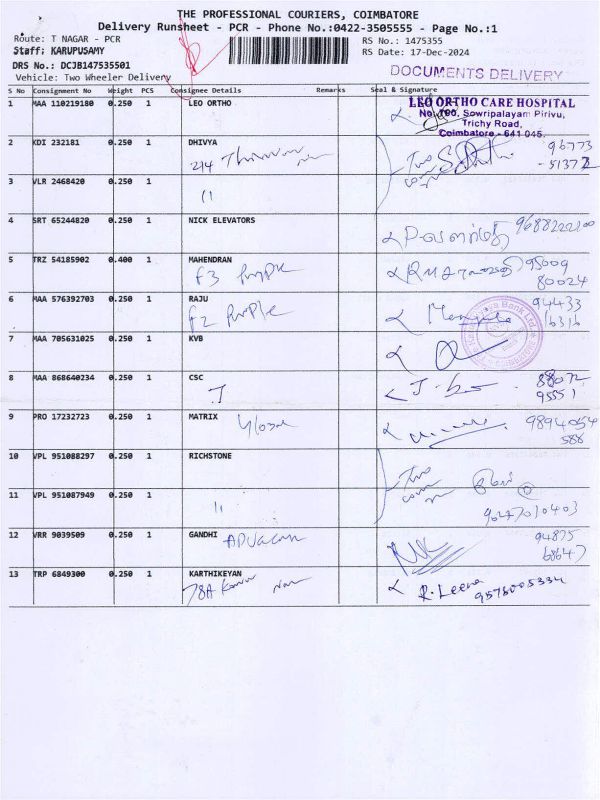 THE PROFESSIONAL COURIERS, COIMBATORE
Delivery Runsheet - PCR - Phone No.:0422-3505555 - Page No.:1
Route: T NAGAR - PCR RS No.: 1475355
Staff: KARUPUSAMY RS Date: 17-Dec-2024
DRS No.: DCJB147535501
DOCUMENTS DELIVERY
Vehicle: Two Wheeler Delivery
S No Consignment No Weight PCS Consignee Details Remarks Seal & Signature
1 MAA 110219180 0.250 1 LEO ORTHO
LEO ORTHO CARE HOSPITAL
No. 700, Sowripalayam Pirivu,
Trichy Road,
Coimbatore - 641 045.
2 KDI 232181 0.250 1 DHIVYA 96773
214 Two - 51377
3 VLR 2468420 0.250 1
11
4 SRT 65244820 0.250 1 NICK ELEVATORS 9688222200
5 TRZ 54185902 0.400 1 MAHENDRAN 95009
F3 Purple 80024
6 MAA 576392703 0.250 1 RAJU 94433
F2 Purple 16316
7 MAA 705631025 0.250 1 KVB
8 MAA 868640234 0.250 1 CSC 88072
J 95551
9 PRO 17232723 0.250 1 MATRIX 9894054
588
10 VPL 951088297 0.250 1 RICHSTONE
Two
11 VPL 951087949 0.250 1
11 9627010403
12 VRR 9039509 0.250 1 GANDHI 94875
68647
13 TRP 6849300 0.250 1 KARTHIKEYAN
78A R. Leena
9576005334